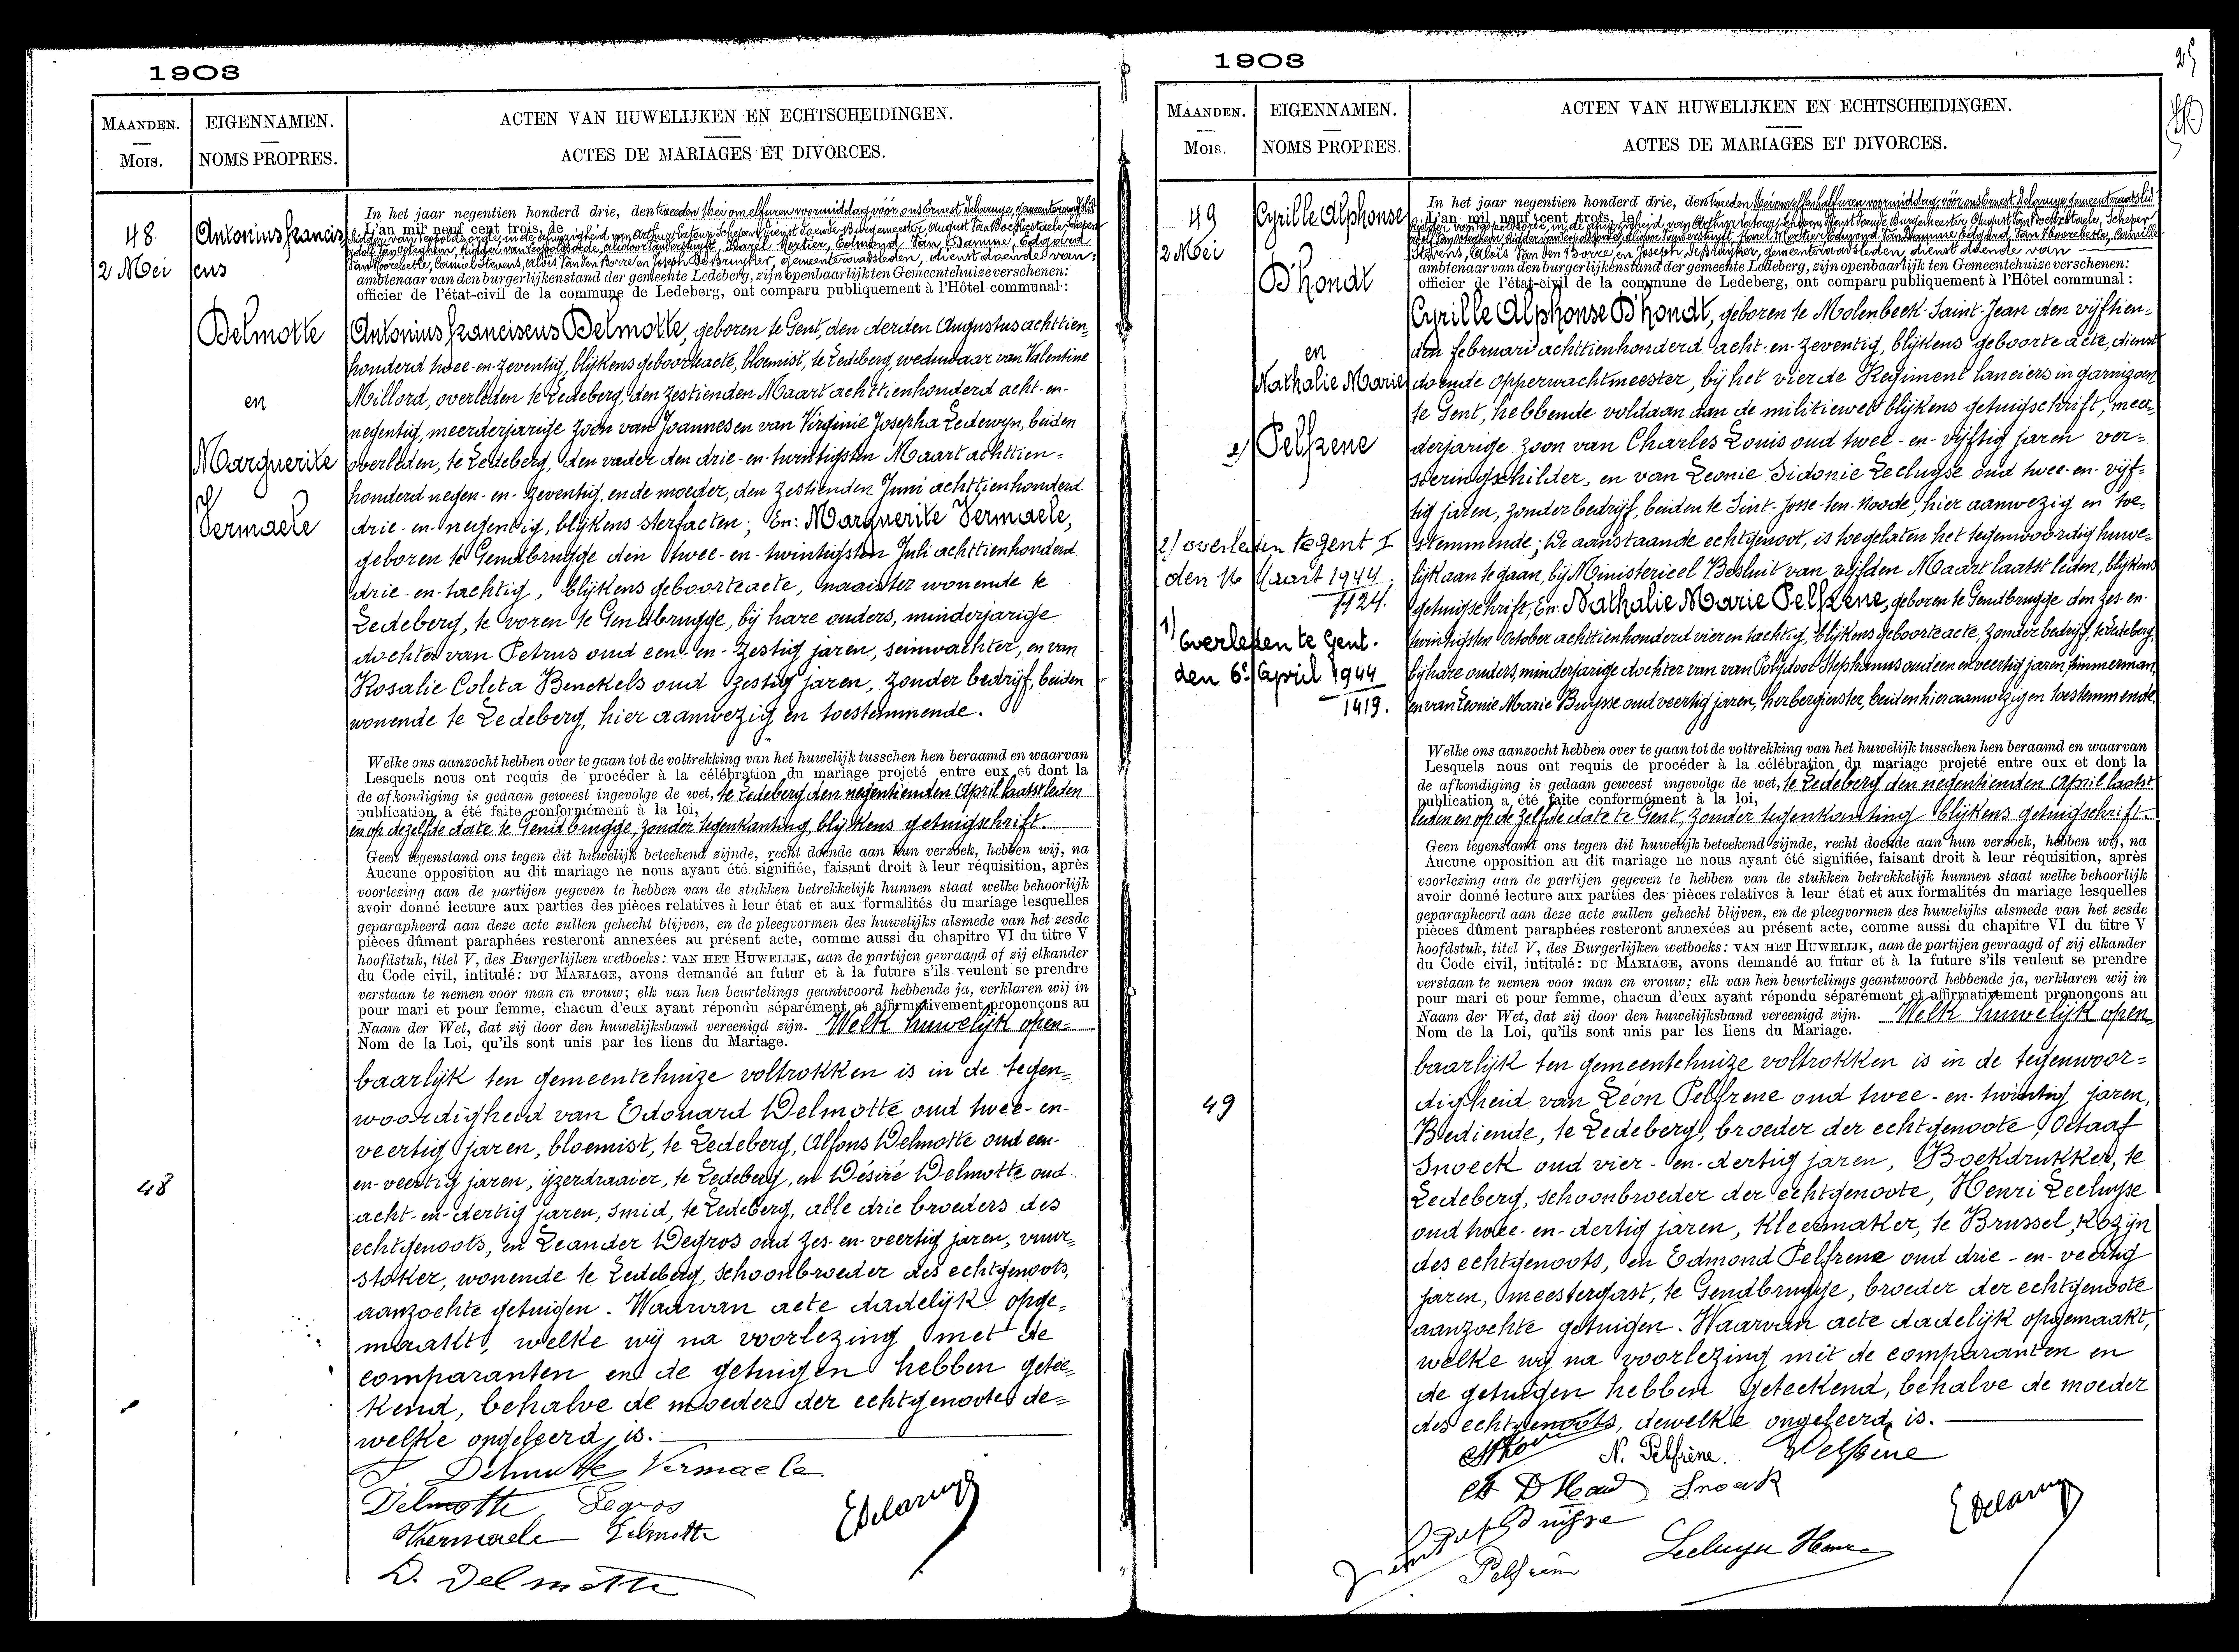 1903
MAANDEN.
Mois.
EIGENNAMEN.
NOMS PROPRES.
ACTEN VAN HUWELIJKEN EN ECHTSCHEIDINGEN.
ACTES DE MARIAGES ET DIVORCES.
48.
2 Mei
Antonius Francis
cus
Delmotte
en
Marguerite
Vermaele
48
In het jaar negentien honderd drie, den tweeden Mei om elf uren voormiddag, vóór ons Ernest Delaruye, gemeenteraadslid
L'an mil neuf cent trois, le
ridder van Leopoldsorde, in de afwezigheid van Arthur Latour, Schepen dienst doende Burgemeester, August Van Bockxstaele, Schepen
Karel Mortier, Edmond Van Damme, Edgard
Van Hoorebeke, Camiel Stevens, Aloïs Van den Borre en Joseph De Bruyker, gemeenteraadsleden, dienst doende van
ambtenaar van den burgerlijkenstand der gemeente Ledeberg, zijn openbaarlijk ten Gemeentehuize verschenen:
officier de l'état-civil de la commune de Ledeberg, ont comparu publiquement à l'Hôtel communal:
Antonius Franciscus Delmotte, geboren te Gent, den derden Augustus achttien-
honderd twee-en-zeventig, blijkens geboorteacte, bloemist, te Ledeberg, weduwaar van Valentine
Millord, overleden te Ledeberg, den zestienden Maart achttienhonderd acht-en-
negentig, meerderjarige zoon van Joannes en van Virginie Josepha Ledewyn, beiden
overleden, te Ledeberg, den vader den drie-en-twintigsten Maart achttien-
honderd negen-en-zeventig, en de moeder, den zestienden Juni achttienhonderd
drie-en-negentig, blijkens sterfacten; En: Marguerite Vermaele,
geboren te Gendbrugge den twee-en-twintigsten Juli achttienhonderd
drie-en-tachtig, blijkens geboorteacte, naaister wonende te
Ledeberg, te voren te Gendbrugge, bij hare ouders, minderjarige
dochter van Petrus oud een-en-zestig jaren, seinwachter, en van
Rosalie Coleta Benckels oud zestig jaren, zonder bedrijf, beiden
wonende te Ledeberg, hier aanwezig en toestemmende.
Welke ons aanzocht hebben over te gaan tot de voltrekking van het huwelijk tusschen hen beraamd en waarvan
Lesquels nous ont requis de procéder à la célébration du mariage projeté entre eux et dont la
de afkondiging is gedaan geweest ingevolge de wet, te Ledeberg den negentienden April laatstleden
publication a été faite conformément à la loi,
en op dezelfde date te Gendbrugge, zonder tegenkanting, blijkens getuigschrift.
Geen tegenstand ons tegen dit huwelijk beteekend zijnde, recht doende aan hun verzoek, hebben wij, na
Aucune opposition au dit mariage ne nous ayant été signifiée, faisant droit à leur réquisition, après
voorlezing aan de partijen gegeven te hebben van de stukken betrekkelijk hunnen staat welke behoorlijk
avoir donné lecture aux parties des pièces relatives à leur état et aux formalités du mariage lesquelles
geparapheerd aan deze acte zullen gehecht blijven, en de pleegvormen des huwelijks alsmede van het zesde
pièces dûment paraphées resteront annexées au présent acte, comme aussi du chapitre VI du titre V
hoofdstuk, titel V, des Burgerlijken wetboeks: VAN HET HUWELIJK, aan de partijen gevraagd of zij elkander
du Code civil, intitulé: DU MARIAGE, avons demandé au futur et à la future s'ils veulent se prendre
verstaan te nemen voor man en vrouw; elk van hen beurtelings geantwoord hebbende ja, verklaren wij in
pour mari et pour femme, chacun d'eux ayant répondu séparément et affirmativement, prononçons au
Naam der Wet, dat zij door den huwelijksband vereenigd zijn. Welk huwelijk open-
Nom de la Loi, qu'ils sont unis par les liens du Mariage.
baarlijk ten gemeentehuize voltrokken is in de tegen-
woordigheid van Edouard Delmotte oud twee-en-
veertig jaren, bloemist, te Ledeberg, Alfons Delmotte oud een-
en-veertig jaren, ijzerdraaier, te Ledeberg, en Désiré Delmotte oud
acht-en-dertig jaren, smid, te Ledeberg, alle drie broeders des
echtgenoots, en Leander Degros oud zes-en-veertig jaren, vuur-
stoker, wonende te Ledeberg, schoonbroeder des echtgenoots,
aanzochte getuigen. Waarvan acte dadelijk opge-
maakt, welke wij na voorlezing met de
comparanten en de getuigen hebben getee-
kend, behalve de moeder der echtgenoote de-
welke ongeleerd is.
Delmotte Vermaele
Delmotte Legros
Vermaele Delmotte
E Delaruye
D. Delmotte
1903
25
MAANDEN.
Mois.
EIGENNAMEN.
NOMS PROPRES.
ACTEN VAN HUWELIJKEN EN ECHTSCHEIDINGEN.
ACTES DE MARIAGES ET DIVORCES.
49
2 Mei
Cyrille Alphonse
D'hondt
en
Nathalie Marie
2) Pelfrene
2) overleden te gent I
den 16 Maart 1944.
1124.
1) Overleden te Gent.
den 6e April 1944
1419.
49
In het jaar negentien honderd drie, den tweeden Mei om elf en half uren voormiddag, vóór ons Ernest Delaruye, gemeenteraadslid
L'an mil neuf cent trois, le
ridder van Leopoldsorde, in de afwezigheid van Arthur Latour, Schepen dienst doende Burgemeester, August Van Bockxstaele, Schepen
Karel Mortier, Edmond Van Damme, Edgard Van Hoorebeke, Camille
Stevens, Aloïs Van den Borre en Joseph De Bruyker, gemeenteraadsleden, dienst doende van
ambtenaar van den burgerlijkenstand der gemeente Ledeberg, zijn openbaarlijk ten Gemeentehuize verschenen:
officier de l'état-civil de la commune de Ledeberg, ont comparu publiquement à l'Hôtel communal:
Cyrille Alphonse D'hondt, geboren te Molenbeek-Saint-Jean den vijftien-
den februari achttienhonderd acht-en-zeventig, blijkens geboorte acte, dienst
doende opperwachtmeester, bij het vierde Regiment lanciers in garnizoen
te Gent, hebbende voldaan aan de militiewet blijkens getuigschrift, meer-
derjarige zoon van Charles Louis oud twee-en-vijftig jaren ver-
sieringschilder, en van Leonie Sidonie Lecluyse oud twee-en-vijf-
tig jaren, zonder bedrijf, beiden te Sint-Josse-ten-Noode, hier aanwezig en toe-
stemmende; De aanstaande echtgenoot, is toegelaten het tegenwoordig huwe-
lijk aan te gaan, bij Ministerieel Besluit van vijfden Maart laatst leden, blijkens
getuigschrift, En: Nathalie Marie Pelfrene, geboren te Gendbrugge den zes-en-
twintigsten October achttienhonderd vier en tachtig, blijkens geboorteacte, zonder bedrijf, te Ledeberg,
bij hare ouders, minderjarige dochter van van Polydoor Stephanus oud een en veertig jaren, timmerman,
en van Leonie Marie Buysse oud veertig jaren, herbergierster, beiden hier aanwezig en toestemmende.
Welke ons aanzocht hebben over te gaan tot de voltrekking van het huwelijk tusschen hen beraamd en waarvan
Lesquels nous ont requis de procéder à la célébration du mariage projeté entre eux et dont la
de afkondiging is gedaan geweest ingevolge de wet, te Ledeberg den negentienden April laatst
publication a été faite conformément à la loi,
leden en op de zelfde date te Gent, zonder tegenkanting blijkens getuigschrift.
Geen tegenstand ons tegen dit huwelijk beteekend zijnde, recht doende aan hun verzoek, hebben wij, na
Aucune opposition au dit mariage ne nous ayant été signifiée, faisant droit à leur réquisition, après
voorlezing aan de partijen gegeven te hebben van de stukken betrekkelijk hunnen staat welke behoorlijk
avoir donné lecture aux parties des pièces relatives à leur état et aux formalités du mariage lesquelles
geparapheerd aan deze acte zullen gehecht blijven, en de pleegvormen des huwelijks alsmede van het zesde
pièces dûment paraphées resteront annexées au présent acte, comme aussi du chapitre VI du titre V
hoofdstuk, titel V, des Burgerlijken wetboeks: VAN HET HUWELIJK, aan de partijen gevraagd of zij elkander
du Code civil, intitulé: DU MARIAGE, avons demandé au futur et à la future s'ils veulent se prendre
verstaan te nemen voor man en vrouw; elk van hen beurtelings geantwoord hebbende ja, verklaren wij in
pour mari et pour femme, chacun d'eux ayant répondu séparément et affirmativement prononçons au
Naam der Wet, dat zij door den huwelijksband vereenigd zijn. Welk huwelijk open-
Nom de la Loi, qu'ils sont unis par les liens du Mariage.
baarlijk ten gemeentehuize voltrokken is in de tegenwoor-
digheid van Léon Pelfrene oud twee-en-twintig jaren,
Bediende, te Ledeberg, broeder der echtgenoote, Octaaf
Snoeck oud vier-en-dertig jaren, Boekdrukker, te
Ledeberg, schoonbroeder der echtgenoote, Henri Lecluyse
oud twee-en-dertig jaren, kleermaker, te Brussel, kozijn
des echtgenoots, en Edmond Pelfrene oud drie-en-veertig
jaren, meestergast, te Gendbrugge, broeder der echtgenoote
aanzochte getuigen. Waarvan acte dadelijk opgemaakt,
welke wij na voorlezing met de comparanten en
de getuigen hebben geteekend, behalve de moeder
des echtgenoots, dewelke ongeleerd is.
N. Pelfrène. Pelfrène
Snoeck
E Delaruye
Lecluyse Henri
Pelfrène